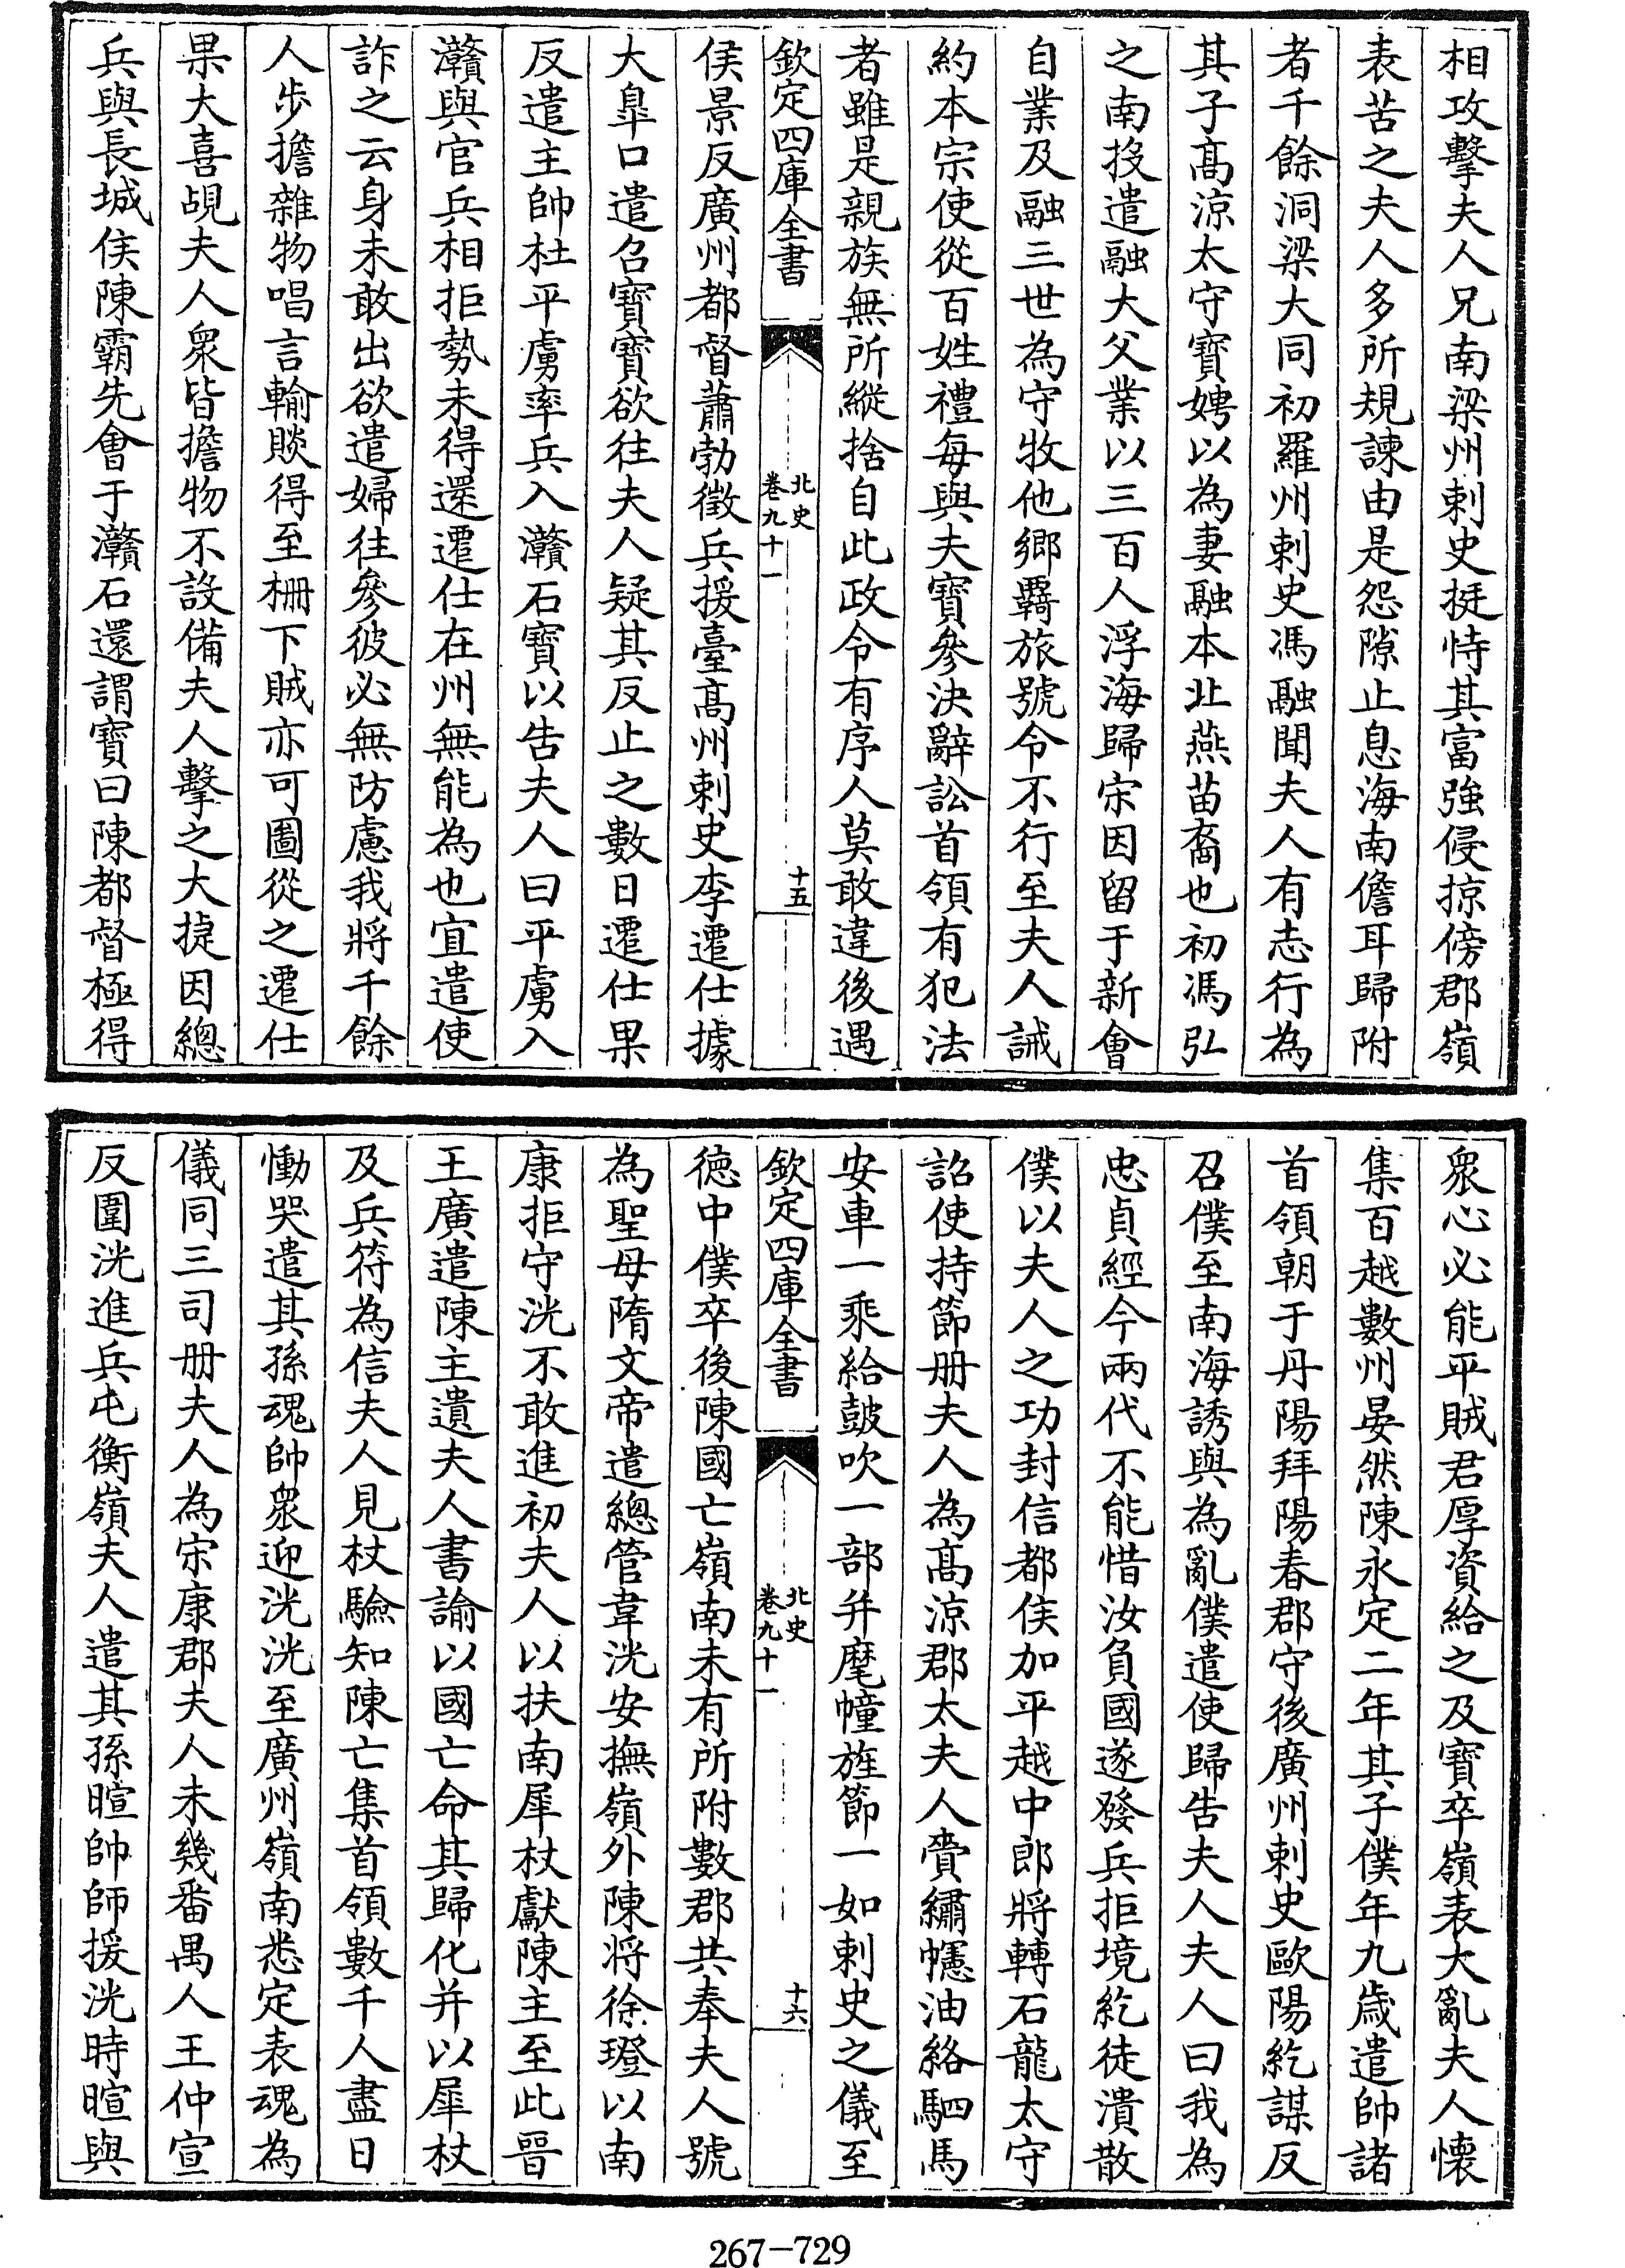 相攻擊夫人兄南梁州刺史挺恃其富強侵掠傍郡嶺
表苦之夫人多所規諫由是怨隙止息海南儋耳歸附
者千餘洞梁大同初羅州刺史馮融聞夫人有志行為
其子髙涼太守寶娉以為妻融本北燕苗裔也初馮弘
之南投遣融大父業以三百人浮海歸宋因留于新會
自業及融三世為守牧他鄉羈旅號令不行至夫人誡
約本宗使從百姓禮每與夫寶參決辭訟首領有犯法
者雖是親族無所縱捨自此政令有序人莫敢違後遇
欽定四庫全書
北史
卷九十一
十五
侯景反廣州都督蕭勃徵兵援臺髙州刺史李遷仕據
大臯口遣召寶寶欲往夫人疑其反止之數日遷仕果
反遣主帥杜平虜率兵入灨石寶以告夫人曰平虜入
灨與官兵相拒勢未得還遷仕在州無能為也宜遣使
詐之云身未敢出欲遣婦往參彼必無防慮我將千餘
人步擔雜物唱言輸賧得至柵下賊亦可圖從之遷仕
果大喜覘夫人衆皆擔物不設備夫人擊之大捷因總
兵與長城侯陳霸先會于灨石還謂寶曰陳都督極得
衆心必能平賊君厚資給之及寶卒嶺表大亂夫人懐
集百越數州晏然陳永定二年其子僕年九歳遣帥諸
首領朝于丹陽拜陽春郡守後廣州刺史歐陽紇謀反
召僕至南海誘與為亂僕遣使歸告夫人夫人曰我為
忠貞經今兩代不能惜汝負國遂發兵拒境紇徒潰散
僕以夫人之功封信都侯加平越中郎將轉石龍太守
詔使持節册夫人為髙涼郡太夫人賫繡幰油絡駟馬
安車一乘給鼓吹一部并麾幢旌節一如刺史之儀至
欽定四庫全書
北史
卷九十一
十六
徳中僕卒後陳國亡嶺南未有所附數郡共奉夫人號
為聖母隋文帝遣總管韋洸安撫嶺外陳将徐璒以南
康拒守洸不敢進初夫人以扶南犀杖獻陳主至此晉
王廣遣陳主遺夫人書諭以國亡命其歸化并以犀杖
及兵符為信夫人見杖驗知陳亡集首領數千人盡日
慟哭遣其孫魂帥衆迎洸洸至廣州嶺南悉定表魂為
儀同三司册夫人為宋康郡夫人未幾番禺人王仲宣
反圍洸進兵屯衡嶺夫人遣其孫暄帥師援洸時暄與
267-729